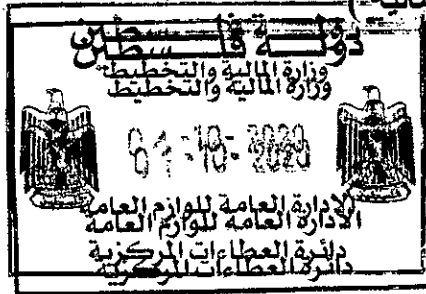 دولة فلسطين
وزارة المالية والتخطيط
وزارة المالية والتخطيط
الإدارة العامة للوازم العامة
الادارة العامة للوازم العامة
دائرة العطاءات المركزية
دائرة العطاءات المركزية